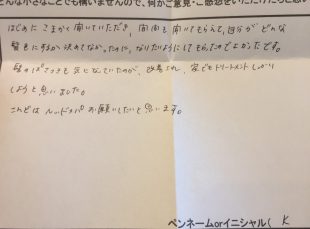 どんな小さなことでも構いませんので、何かご意見・ご感想をいただけたら
はじめに こまかく聞いていただき、 時間も 聞いてもらえて、自分が どんな
髪色にするか決めてなかったのに、なりたいようにしてもらえたのでよかったです。
髪のパサつきも気になっていたが、改善され、家でもトリートメントしっかり
しようと思いました。
こんどは ヘッドスパ お願いしたいと思います。
ペンネームorイニシャル( K